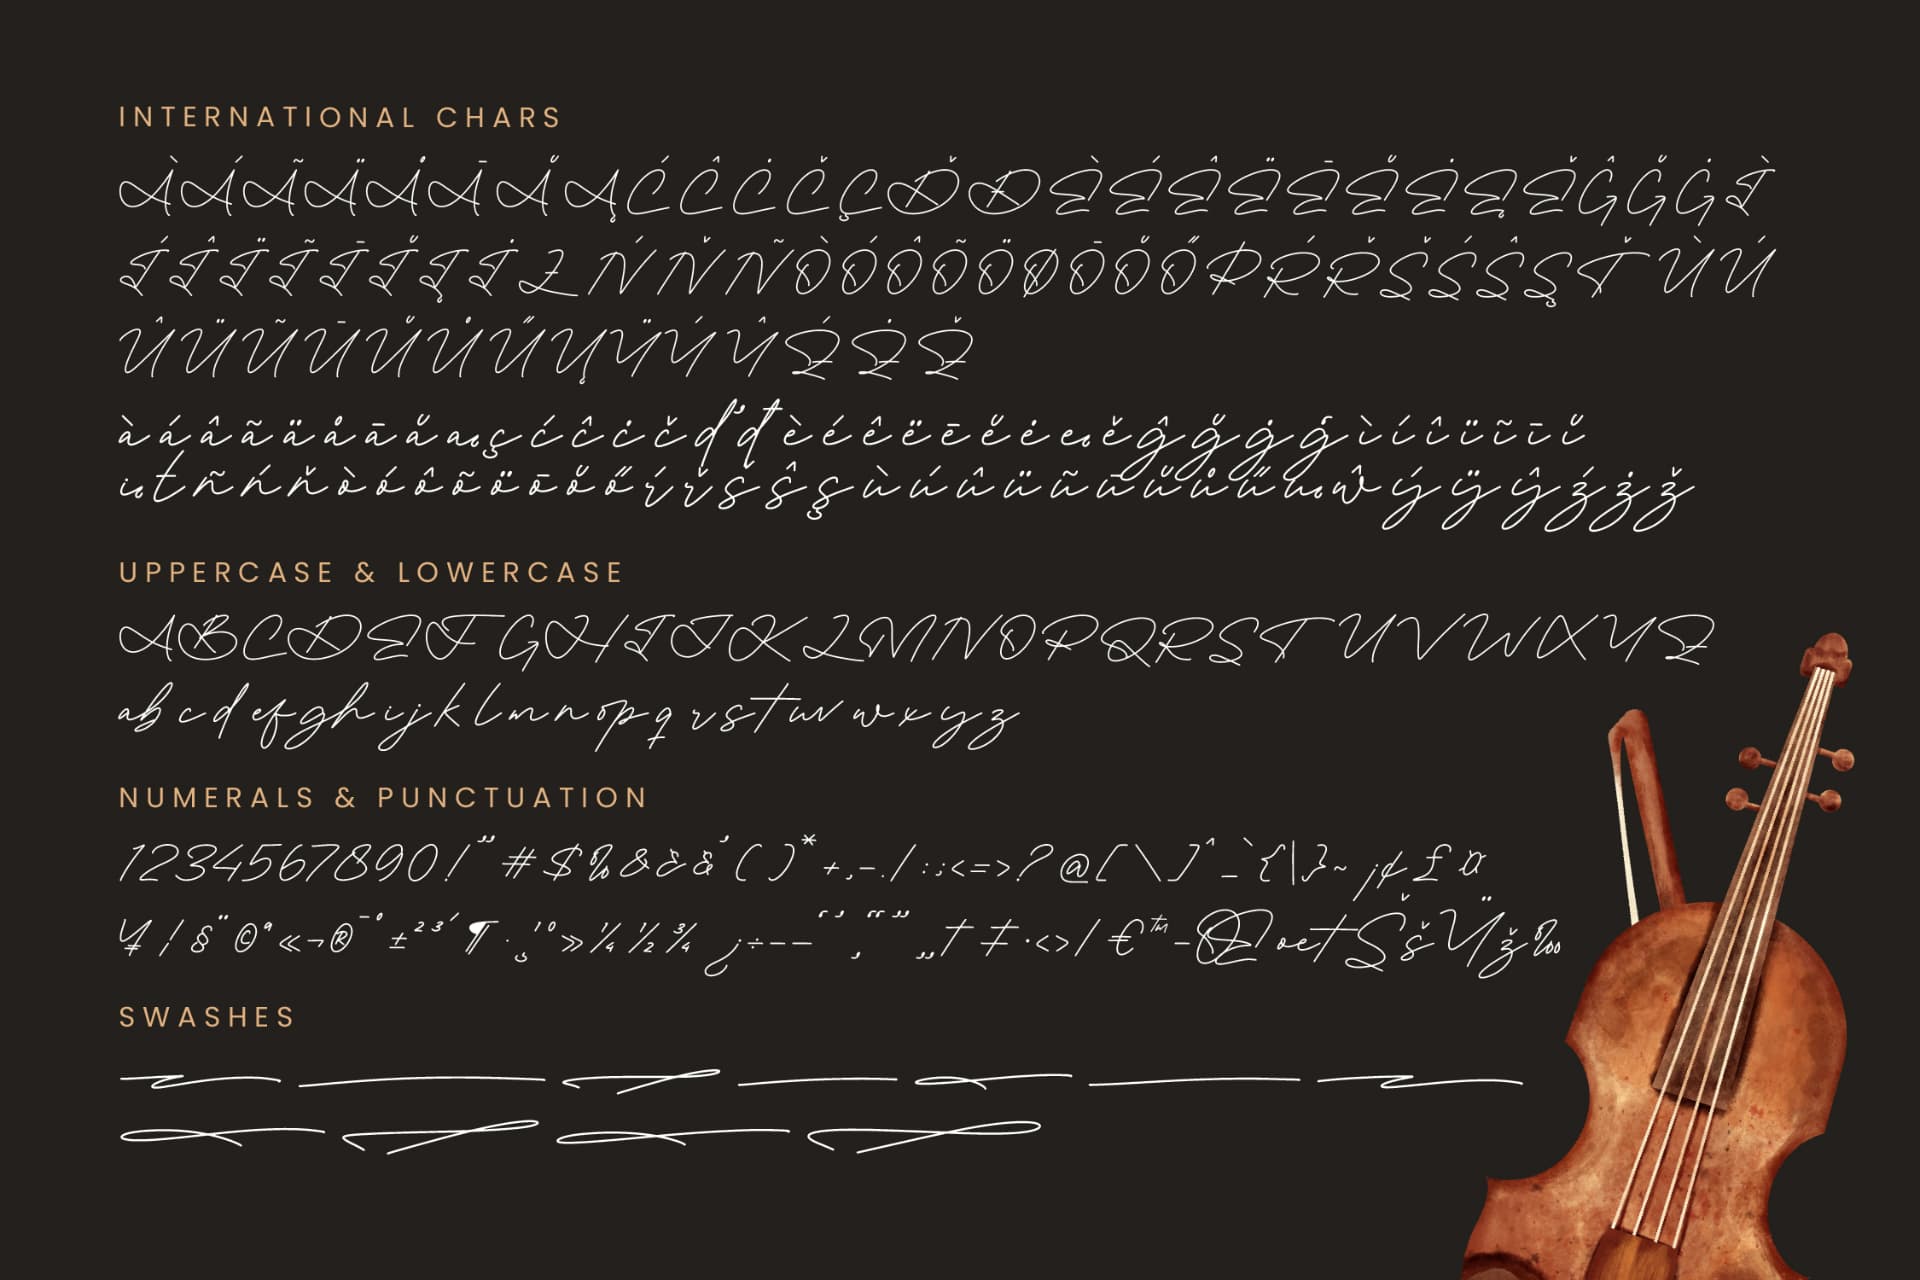 INTERNATIONAL CHARS
ÀÁÃÄÅĀÅĄĆĈĊČÇĎĐÈÉÊËĒĔĖĘĚĜĞĠÌ
ÍÎÏĨĪĬĮİŁŃŇÑÒÓÔÕÖØŌŎŐPŔŘŠŚŜŞŤÙÚ
ÛÜŨŪŬŮŰŲŸÝŶŹŻŽ
àáâãäåāăąçćĉċčďđèéêëēĕėęěĝğġģìíîïĩīĭ
įłñńňòóôõöōŏőŕřśŝşùúûüũūŭůűųŵýÿŷźżž
UPPERCASE & LOWERCASE
ABCDEFGHIJKLMNOPQRSTUVWXYZ
abcdefghijklmnopqrstuvwxyz
NUMERALS & PUNCTUATION
1234567890!"#$%&&&'()*+,-./:;<=>?@[\]^_`{|}~¡¢£¤
¥¦§¨©ª«¬®¯°±²³´¶·¸¹º»¼½¾¿÷–—‘’‚“”„†‡•‹›⁄€™−ŒœŠšŸž‰
SWASHES